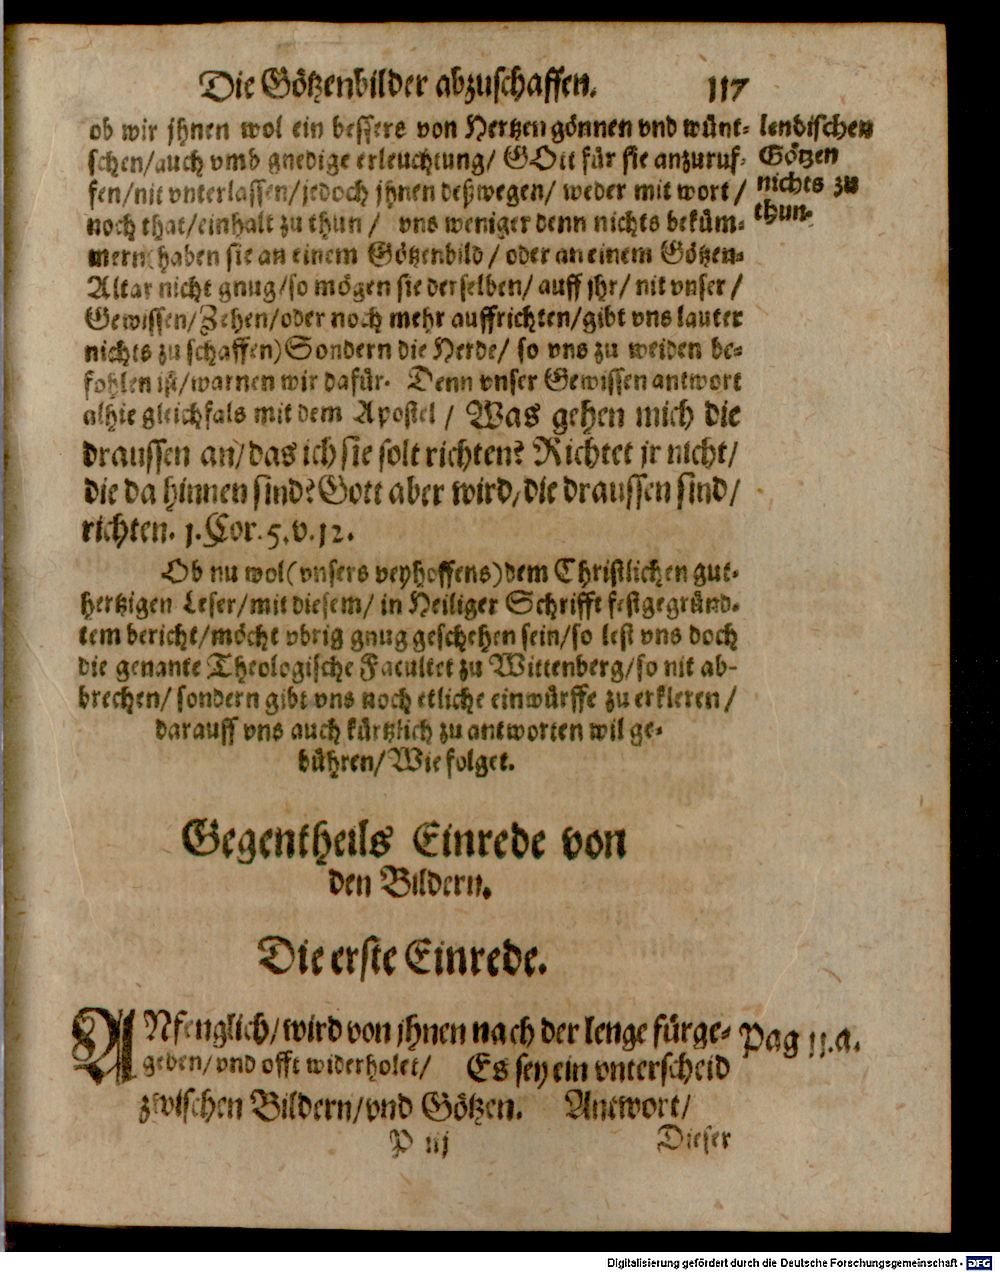 Die Götzenbilder abzuschaffen. 117
ob wir jhnen wol ein bessere von Hertzen gönnen vnd wünt-
schen/auch vmb gnedige erleuchtung/ GOtt für sie anzuruf-
fen/nit vnterlassen/jedoch jhnen deßwegen/ weder mit wort/
noch that/einhalt zu thun/ vns weniger denn nichts beküm-
mern: haben sie an einem Götzenbild/ oder an einem Götzen-
Altar nicht gnug/so mögen sie derselben/ auff jhr/ nit vnser/
Gewissen/Zehen/oder noch mehr auffrichten/gibt vns lauter
nichts zu schaffen) Sondern die Herde/ so vns zu weiden be-
fohlen ist/warnen wir dafür. Denn vnser Gewissen antwort
alhie gleichfals mit dem Apostel/ Was gehen mich die
draussen an/das ich sie solt richten? Richtet jr nicht/
die da hinnen sind? Gott aber wird/die draussen sind/
richten. 1. Cor. 5. v. 12.
lendischen
Götzen
nichts zu
thun.
Ob nu wol (vnsers veyhoffens) dem Christlichen gut-
hertzigen Leser/mit diesem/ in Heiliger Schrifft festgegründ-
tem bericht/möcht vbrig gnug geschehen sein/so lest vns doch
die genante Theologische Facultet zu Wittenberg/so nit ab-
brechen/ sondern gibt vns noch etliche einwürffe zu erkleren/
darauff vns auch kürtzlich zu antworten wil ge-
bühren/Wie folget.
Gegentheils Einrede von
den Bildern.
Die erste Einrede.
ANfenglich/wird von jhnen nach der lenge fürge-
geben/vnd offt widerholet/ Es sey ein vnterscheid
zwischen Bildern/vnd Götzen. Antwort/
Pag 11.a.
P iij Dieser
Digitalisierung gefördert durch die Deutsche Forschungsgemeinschaft - DFG